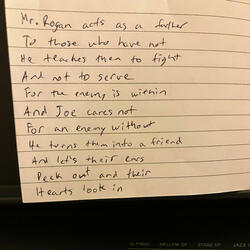 Mr. Rogan acts as a father
To those who have not
He teaches them to fight
And not to serve
For the enemy is within
And Joe cares not
For an enemy without
He turns them into a friend
And let's their ears
Peek out and their
Hearts look in